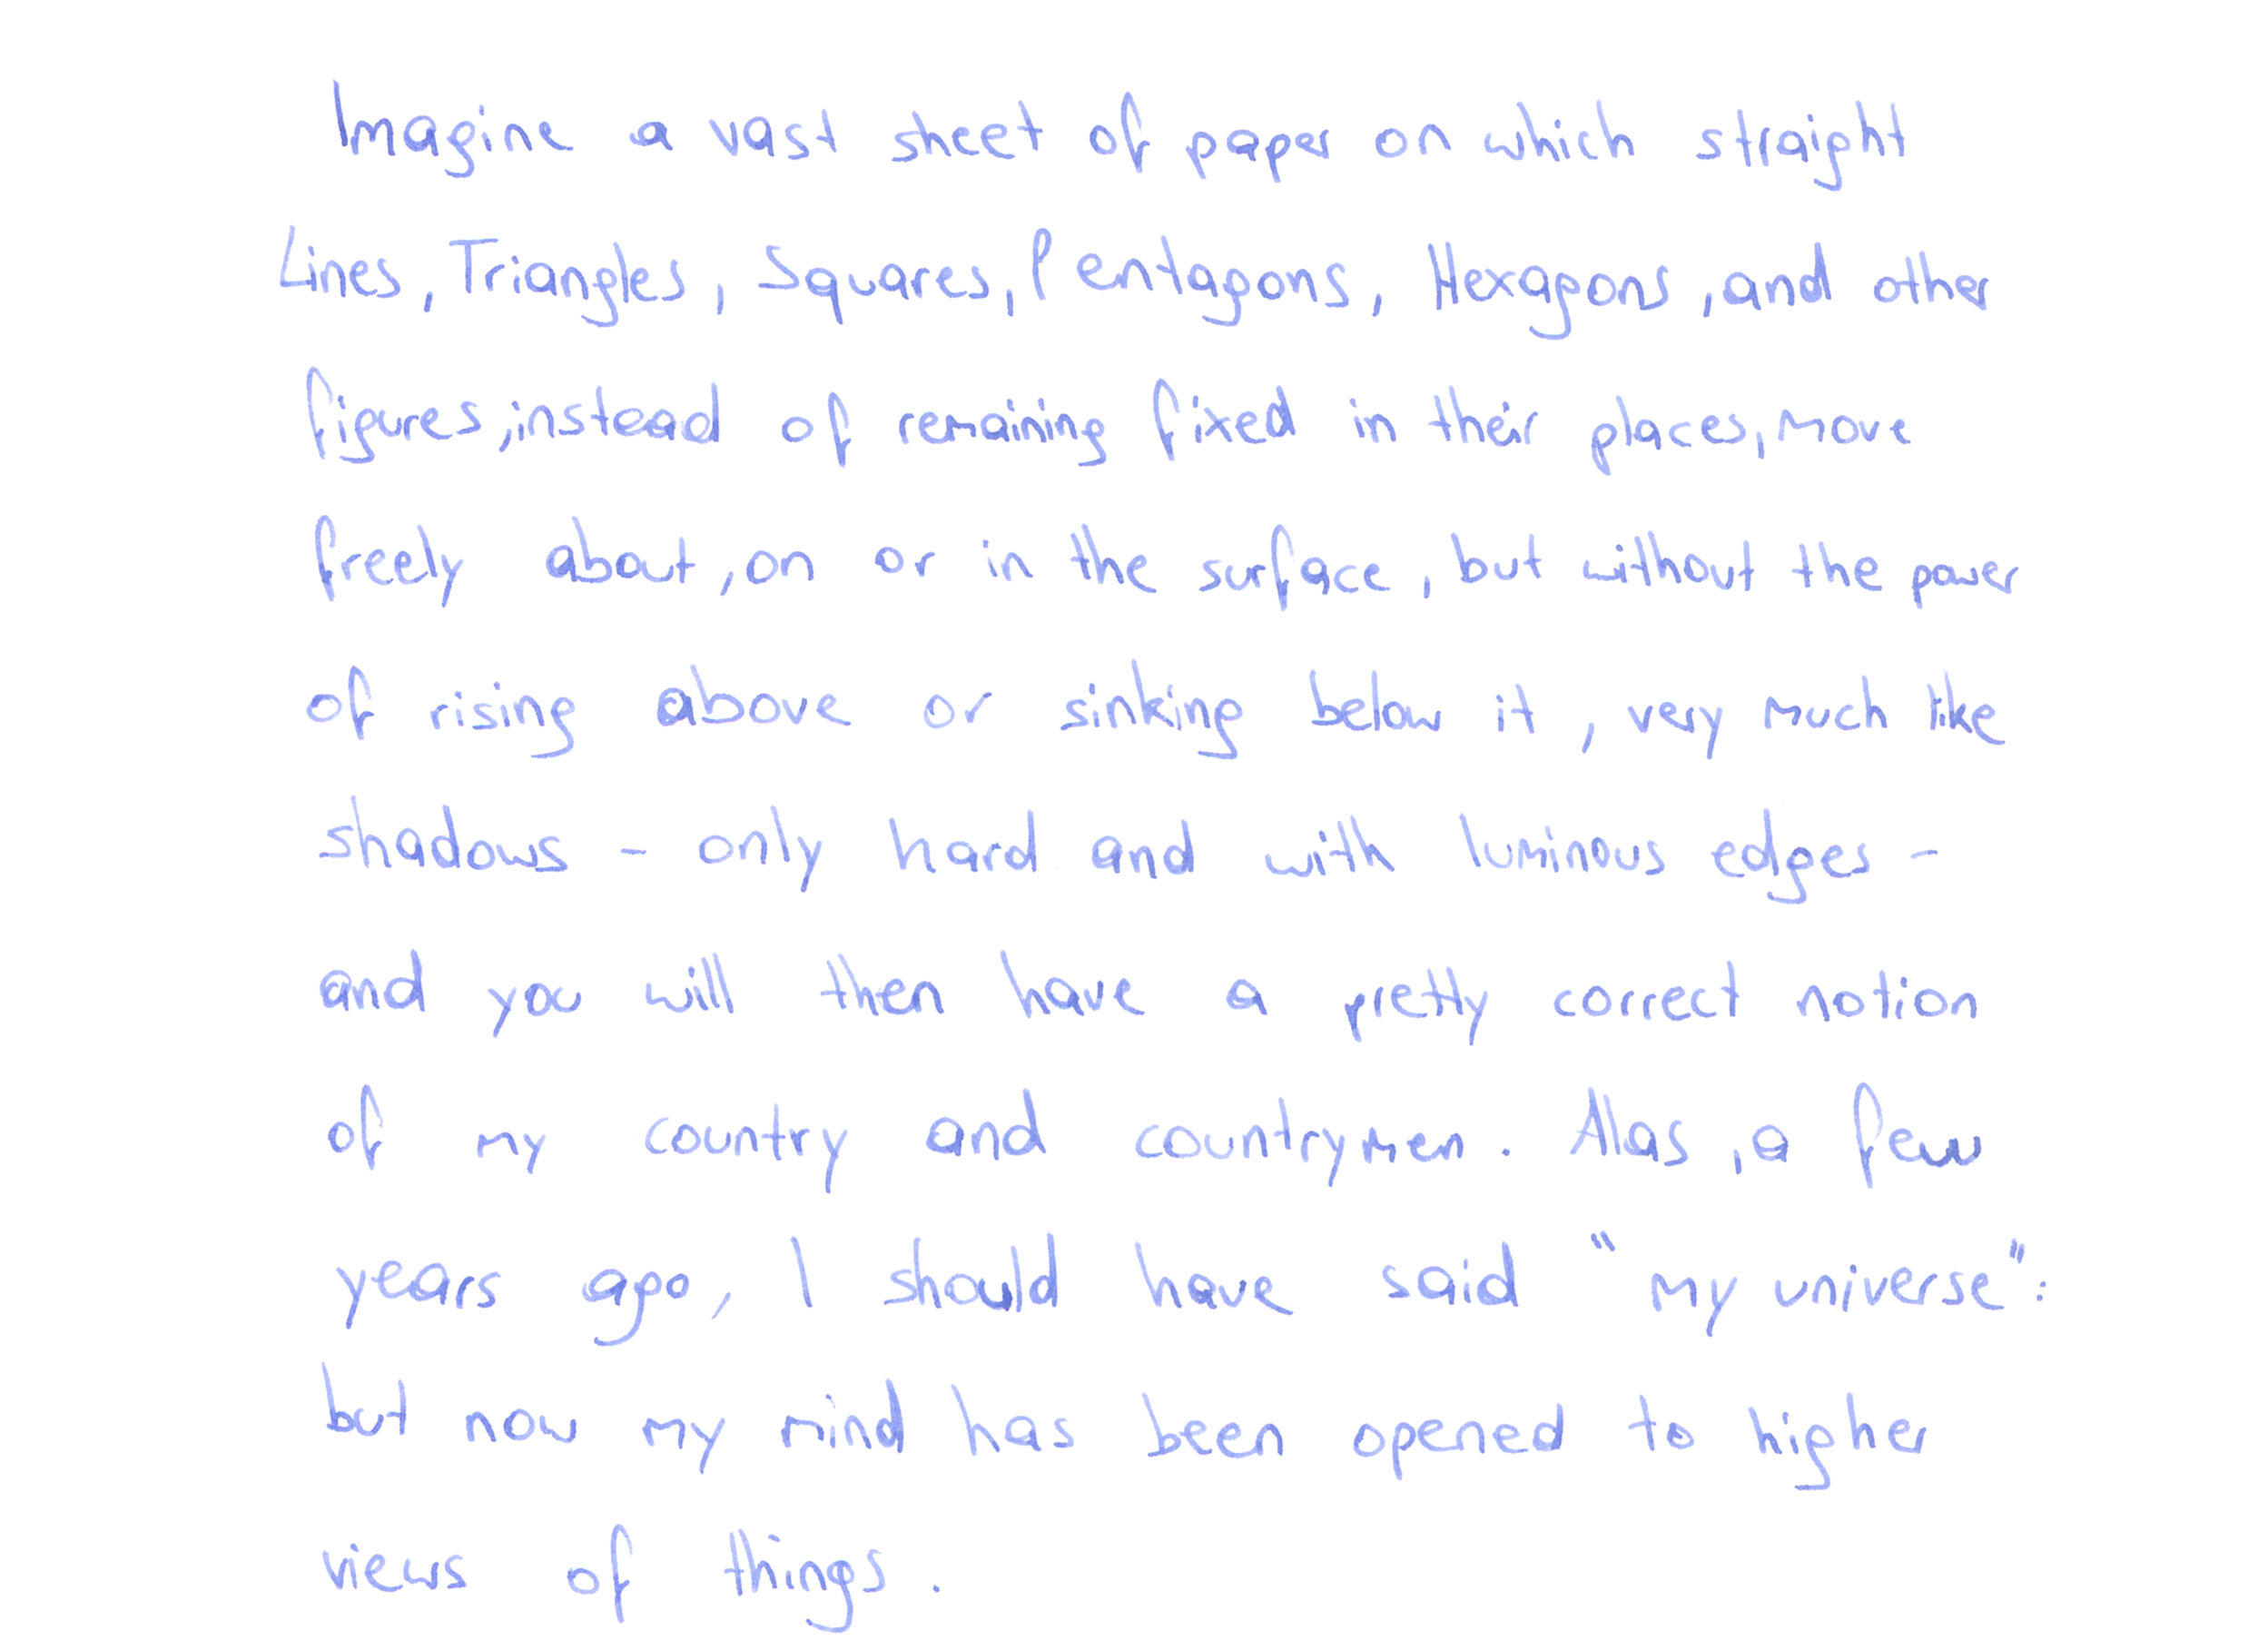 Imagine a vast sheet of paper on which straight
Lines, Triangles, Squares, Pentagons, Hexagons, and other
figures, instead of remaining fixed in their places, move
freely about, on or in the surface, but without the power
of rising above or sinking below it, very much like
shadows - only hard and with luminous edges -
and you will then have a pretty correct notion
of my country and countrymen. Alas, a few
years ago, I should have said "my universe":
but now my mind has been opened to higher
views of things.